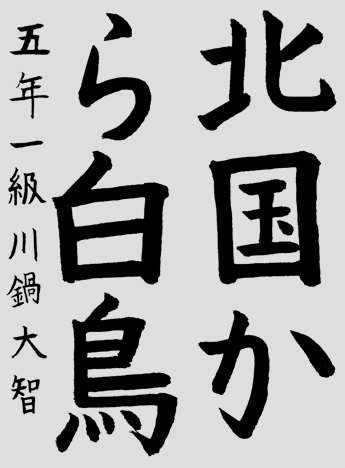 北国か
ら白鳥
五年一級川鍋大智